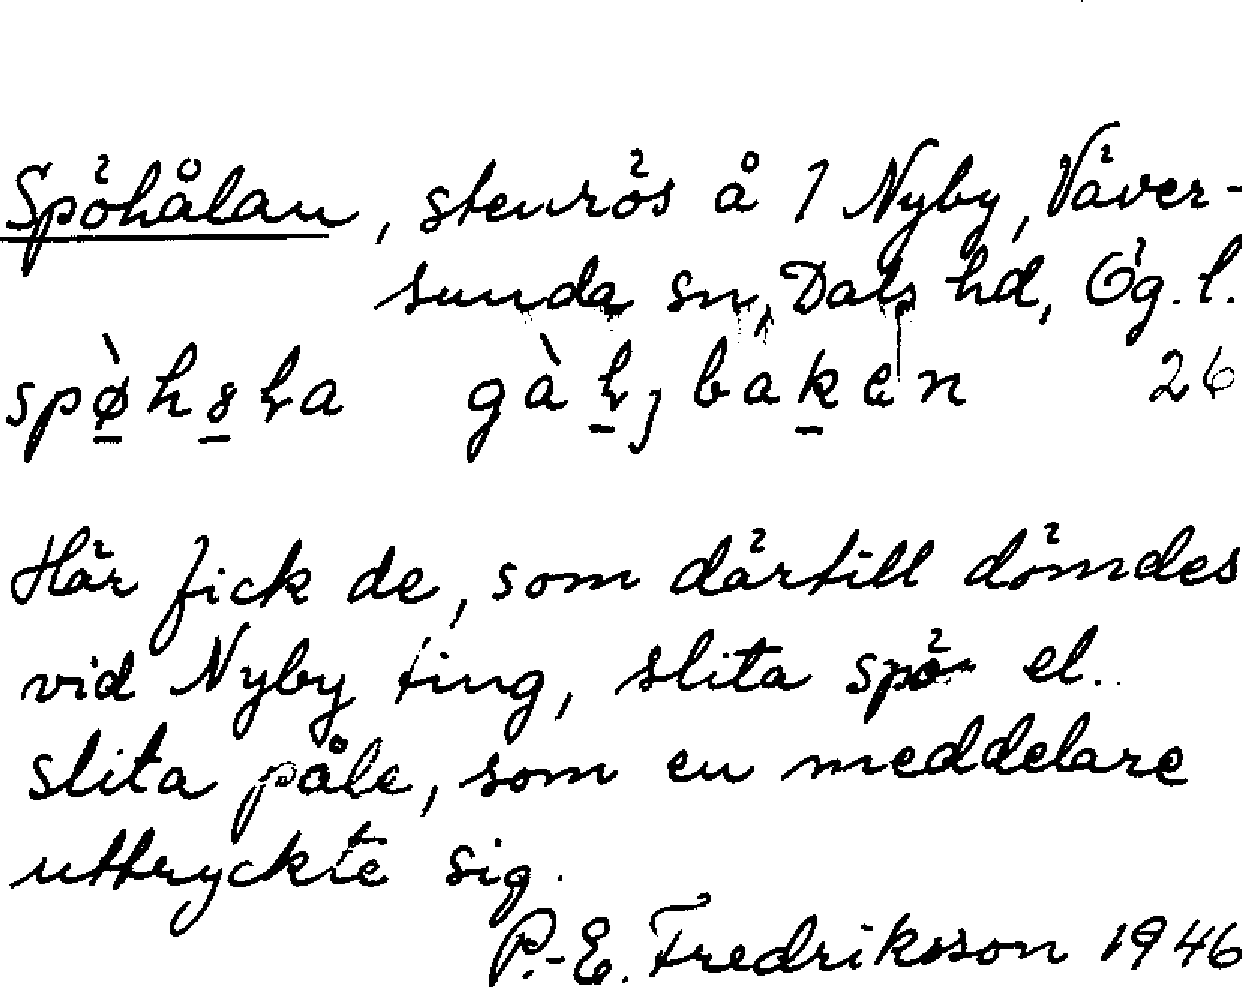 Spöhålan, stenrös å 1 Nyby, Väver-
sunda sn, Dals hd, Ög. l.
26
Här fick de, som därtill dömdes
vid Nyby ting, slita spö el.
slita påle, som en meddelare
uttryckte sig.
P.-E. Fredriksson 1946